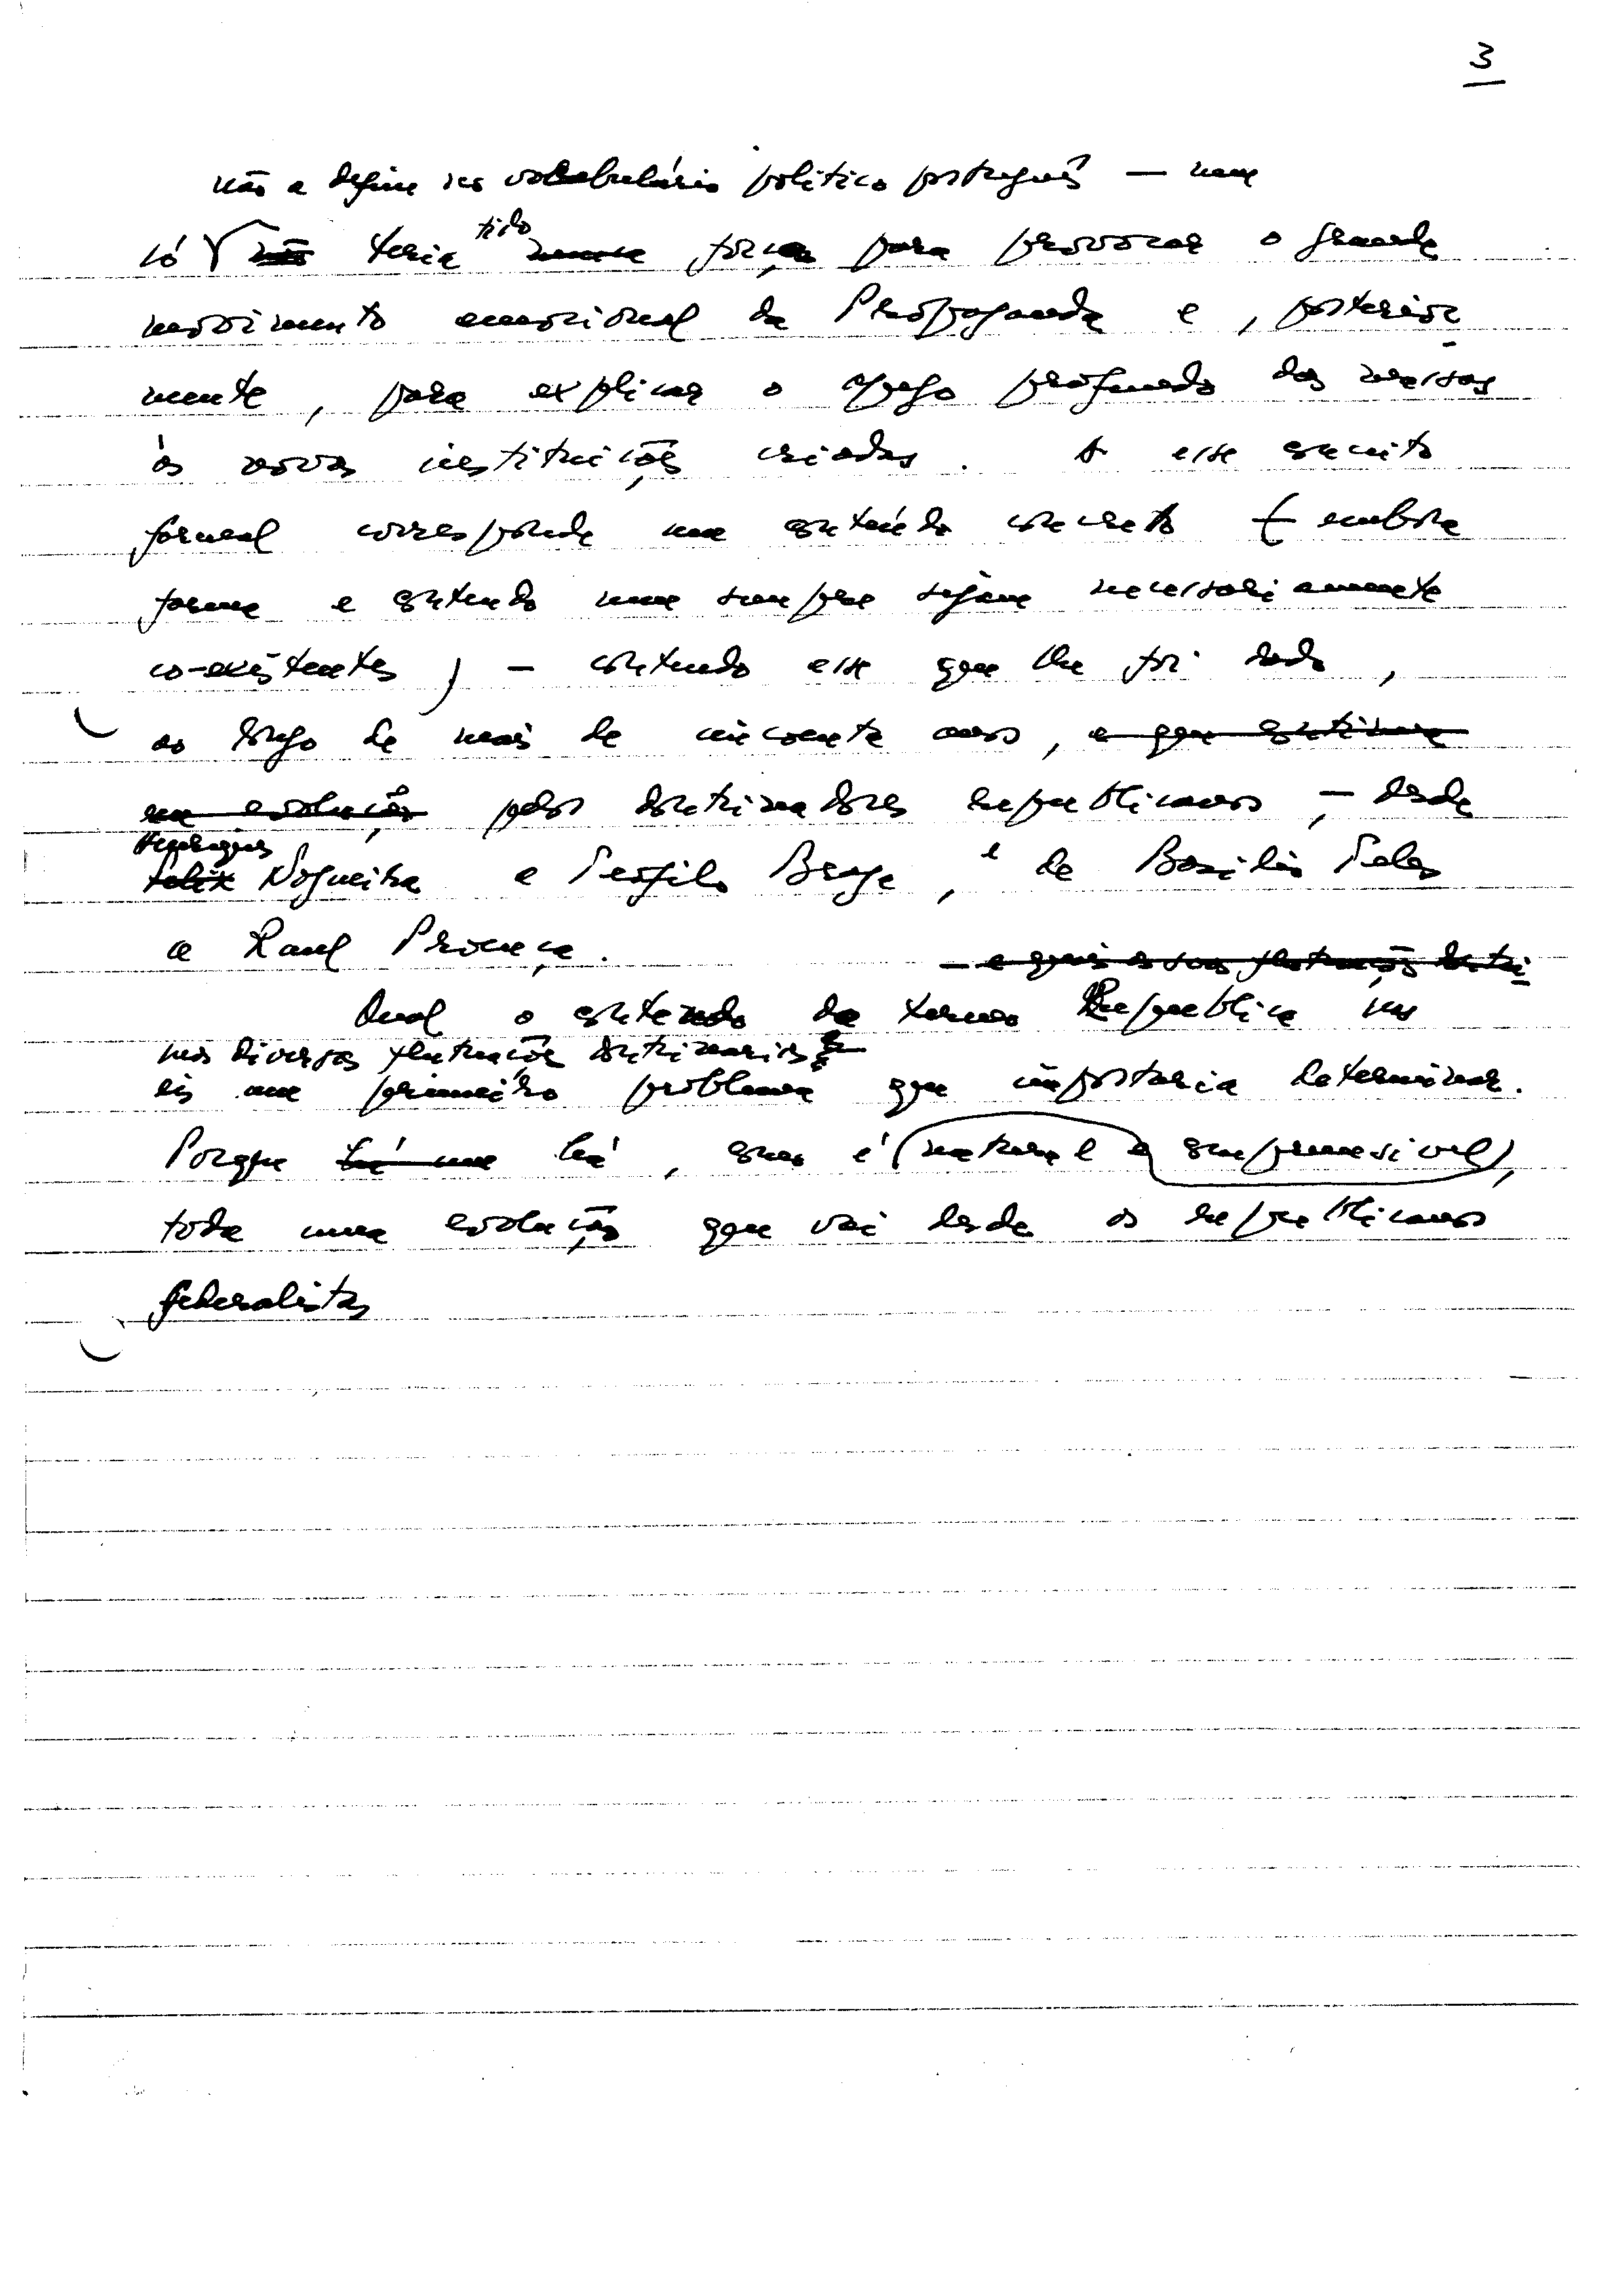 3
não a define no vocabulário político português — nem
só não teria tido nunca força para provocar o grande
movimento emocional da Propaganda e, posterior-
mente, para explicar o apego profundo das massas
às novas instituições criadas. A esse conceito
formal corresponde um conteúdo concreto (embora
forma e conteudo nem sempre sejam necessariamente
co-existentes) — conteudo esse que lhe foi dado,
ao longo de mais de cincoenta anos, e que continua
em evolução pelos doutrinadores republicanos, — desde
Henriques
Felix Nogueira e Teófilo Braga, e de Basílio Teles
a Raul Proença. — e quais as suas flutuações doutri-
Qual o conteudo do termo República nas
nas diversas flutuações doutrinarias
eis um primeiro problema que importaria determinar.
Porque há um há, como é (natural e compreensivel),
toda uma evolução que vai desde os republicanos
federalistas